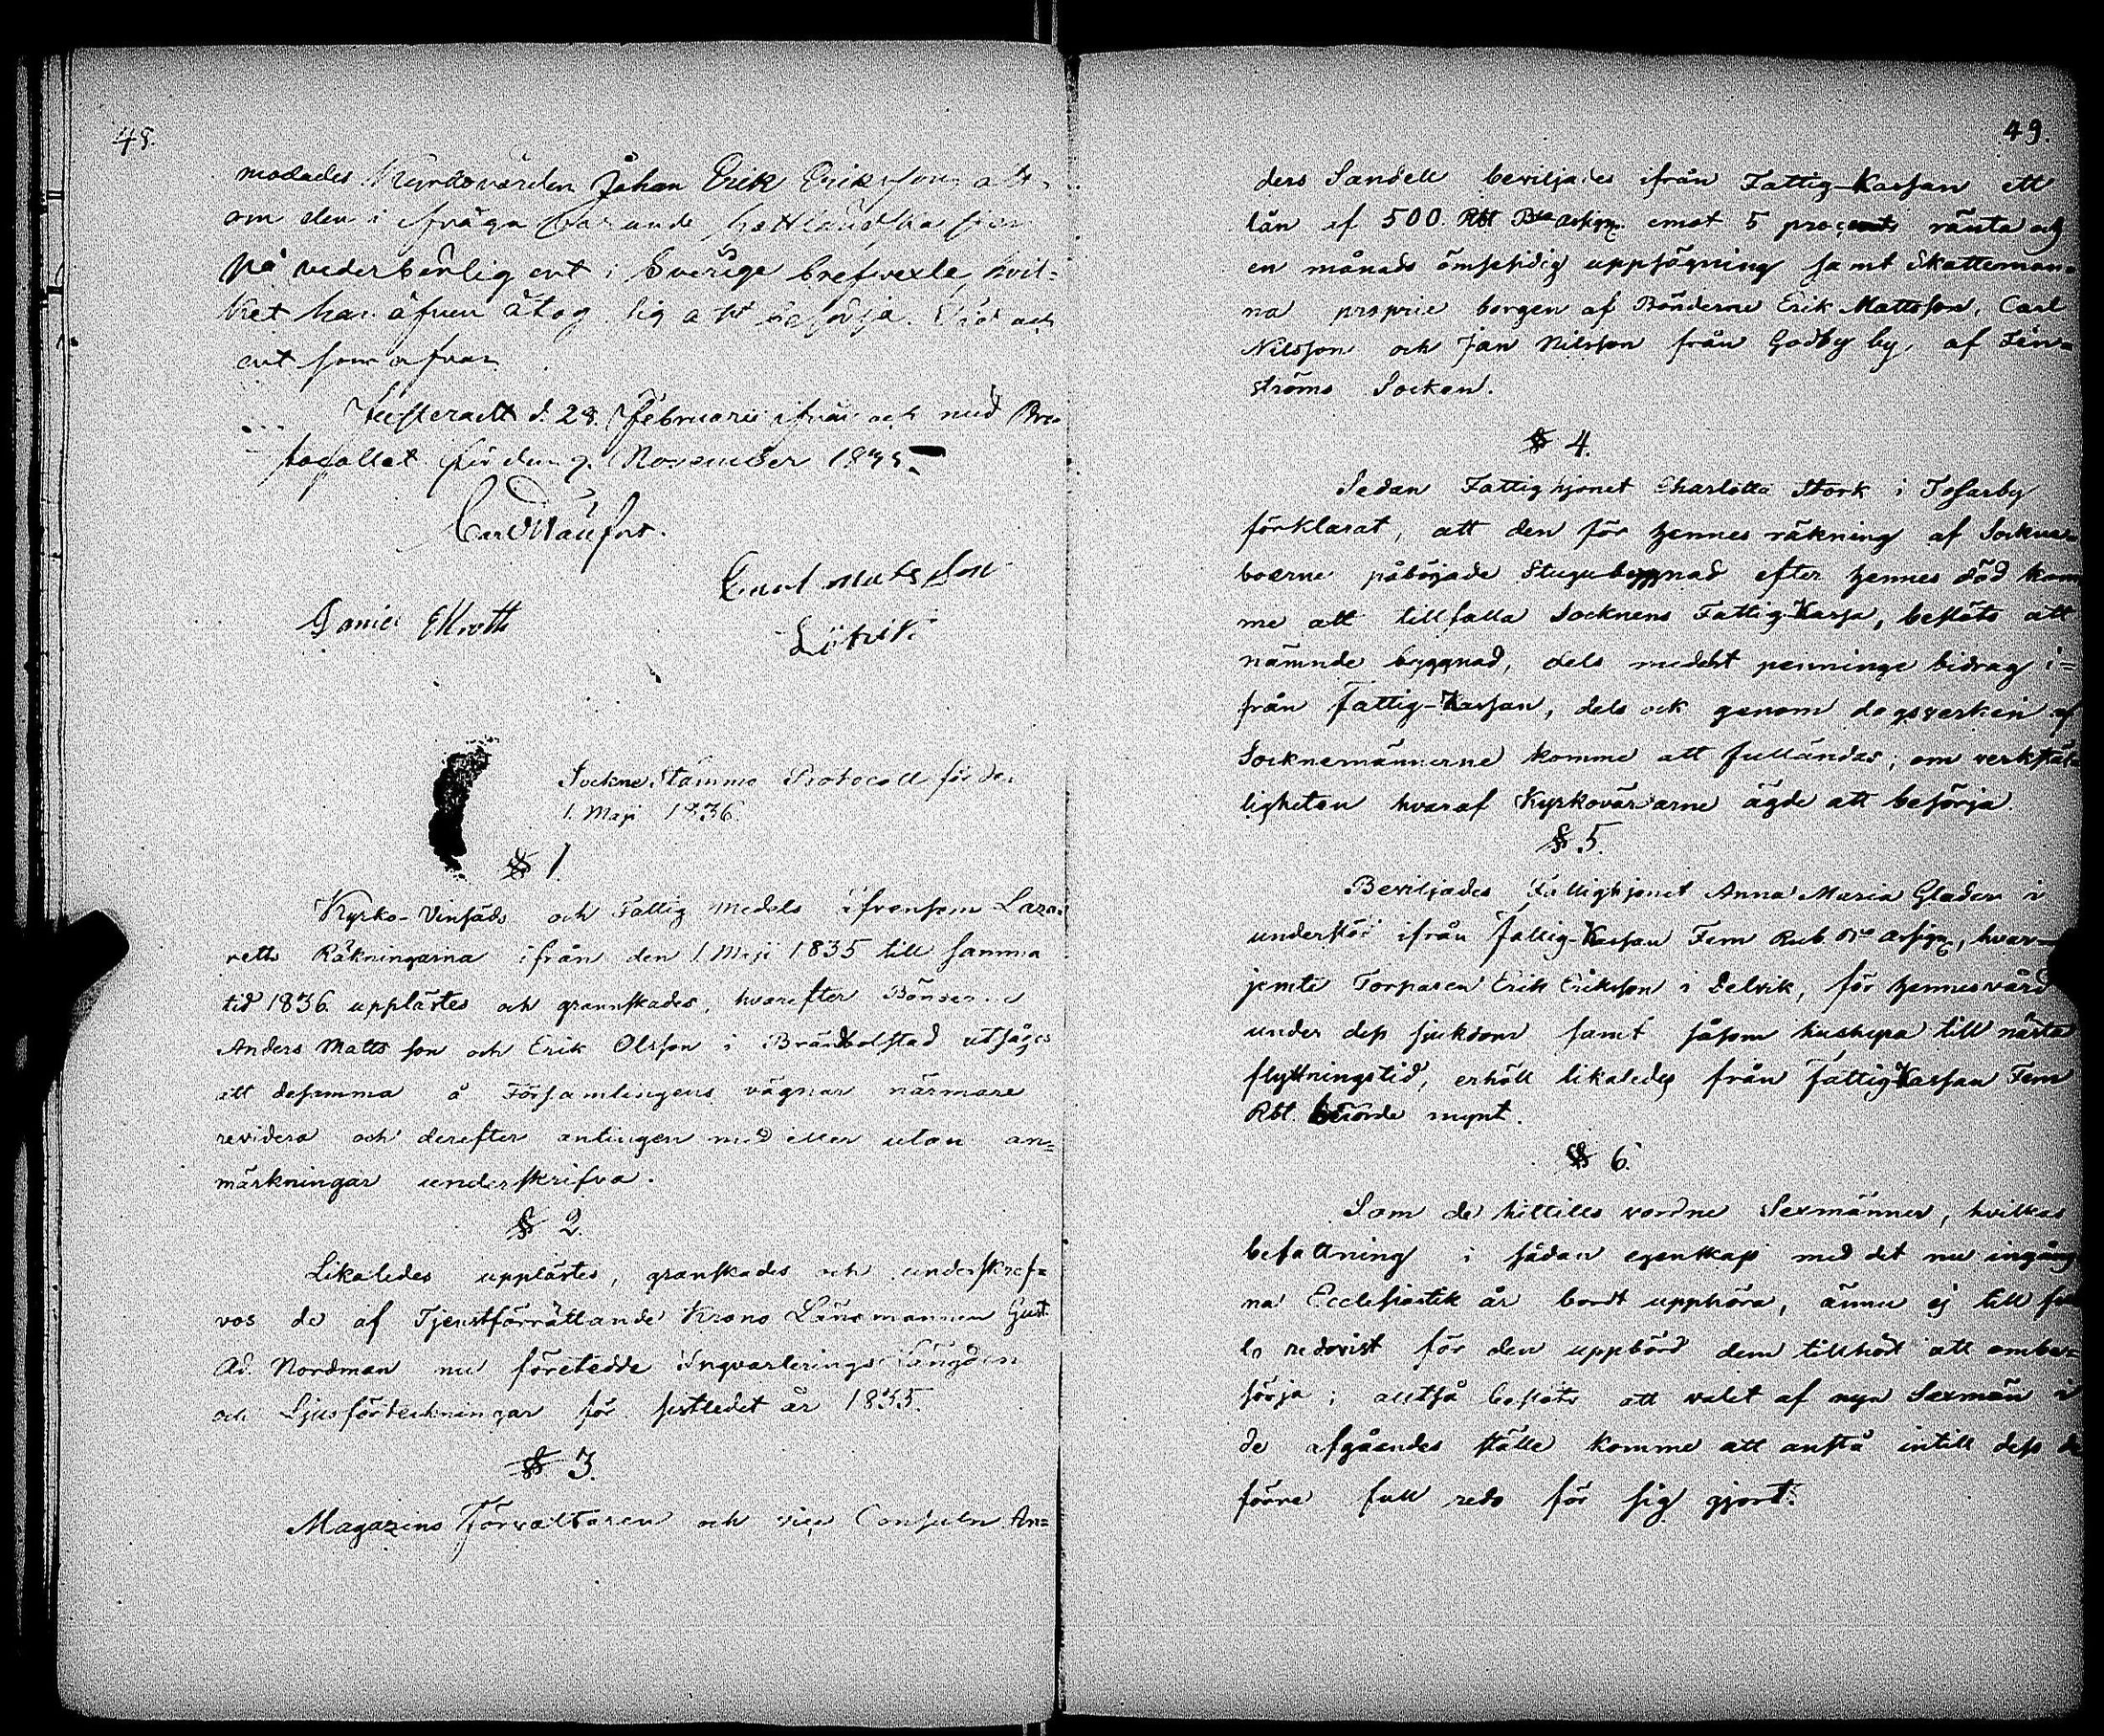 48.
modades Kyrkovärden Johan Erik Eriksson att
om den i fråga varande
på vederbörlig ort i Sverige brefvexla, hvil-
ket han äfven åtog sig att besörja. År och
ort som ofvan
Justeradt d. 28. Februarii ifrån och med Pro-
tocollet för den 9. November 1835.
Daniel
Carl Matsson
Sockne Stämmo Protocoll för den
1. Maji 1836.
§ 1.
Kyrko- Vinsäds och Fattig medels äfvensom Laza-
retts Räkningarna ifrån den 1 Maji 1835 till samma
tid 1836 upplästes och granskades, hvarefter Bönderne
Anders Mattsson och Erik Olsson i Brändbolstad utsågos
att desamma å Församlingens vägnar närmare
revidera och derefter antingen med eller utan an=
märkningar underskrifva.
§ 2.
Likaledes upplästes, granskades och underskref=
vos de af Tjenstförrättande Krono Länsmannen Gust.
Ad. Nordman nu företedde Inqvarterings Längden
och Ljusförteckningar för sistledet år 1835.
§ 3.
Magazins Förvaltaren och vice Consuln An=
49.
ders Sandell beviljades ifrån Fattig-Kassan ett
lån af 500. Rbl Bco assign. emot 5 procents ränta och
en månads ömsesidig uppsägning samt Skatteman-
na proprie borgen af Bönderne Erik Mattsson, Carl
Nilsson och Jan Nilsson från Godby by, af Fin-
ströms Socken.
§ 4.
Sedan Fattighjonet Charlotta Stork i Tosarby
förklarat, att den för hennes räkning af Sockne-
boerne påbörjade Stugubyggnad efter hennes död kom
me att tillfalla Socknens Fattig-Kassa, beslöts att
nämnde byggnad, dels medelst penninge bidrag i=
från Fattig-Kassan, dels ock genom dagsverken af
Socknemännerne komme att fulländas; om verkstäl
ligheten hvaraf Kyrkovärdarne ägde att besörja.
§ 5.
Beviljades Fattighjonet Anna Maria Glader i
understöd ifrån Fattig-Kassan Fem Rub. Bco assign., hvar-
jemte Torparen Erik Eriksson i Delvik, för hennes vård
under dess sjukdom samt såsom hushyra till nästa
flyttningstid, erhöll likaledes från Fattig-Kassan Fem
Rbl. berörde mynt.
§ 6.
Som de hittills vordne Sexmänner, hvilkas
befattning i sådan egenskap med det nu ingång
na Ecclesiastik år bordt upphöra, ännu ej till ful
lo redovist för den uppbörd dem tillhört att ombe=
sörja; alltså beslöts att valet af nya Sexmän i
de afgåendes ställe komme att anstå intill dess de
förre full redo för sig gjort.